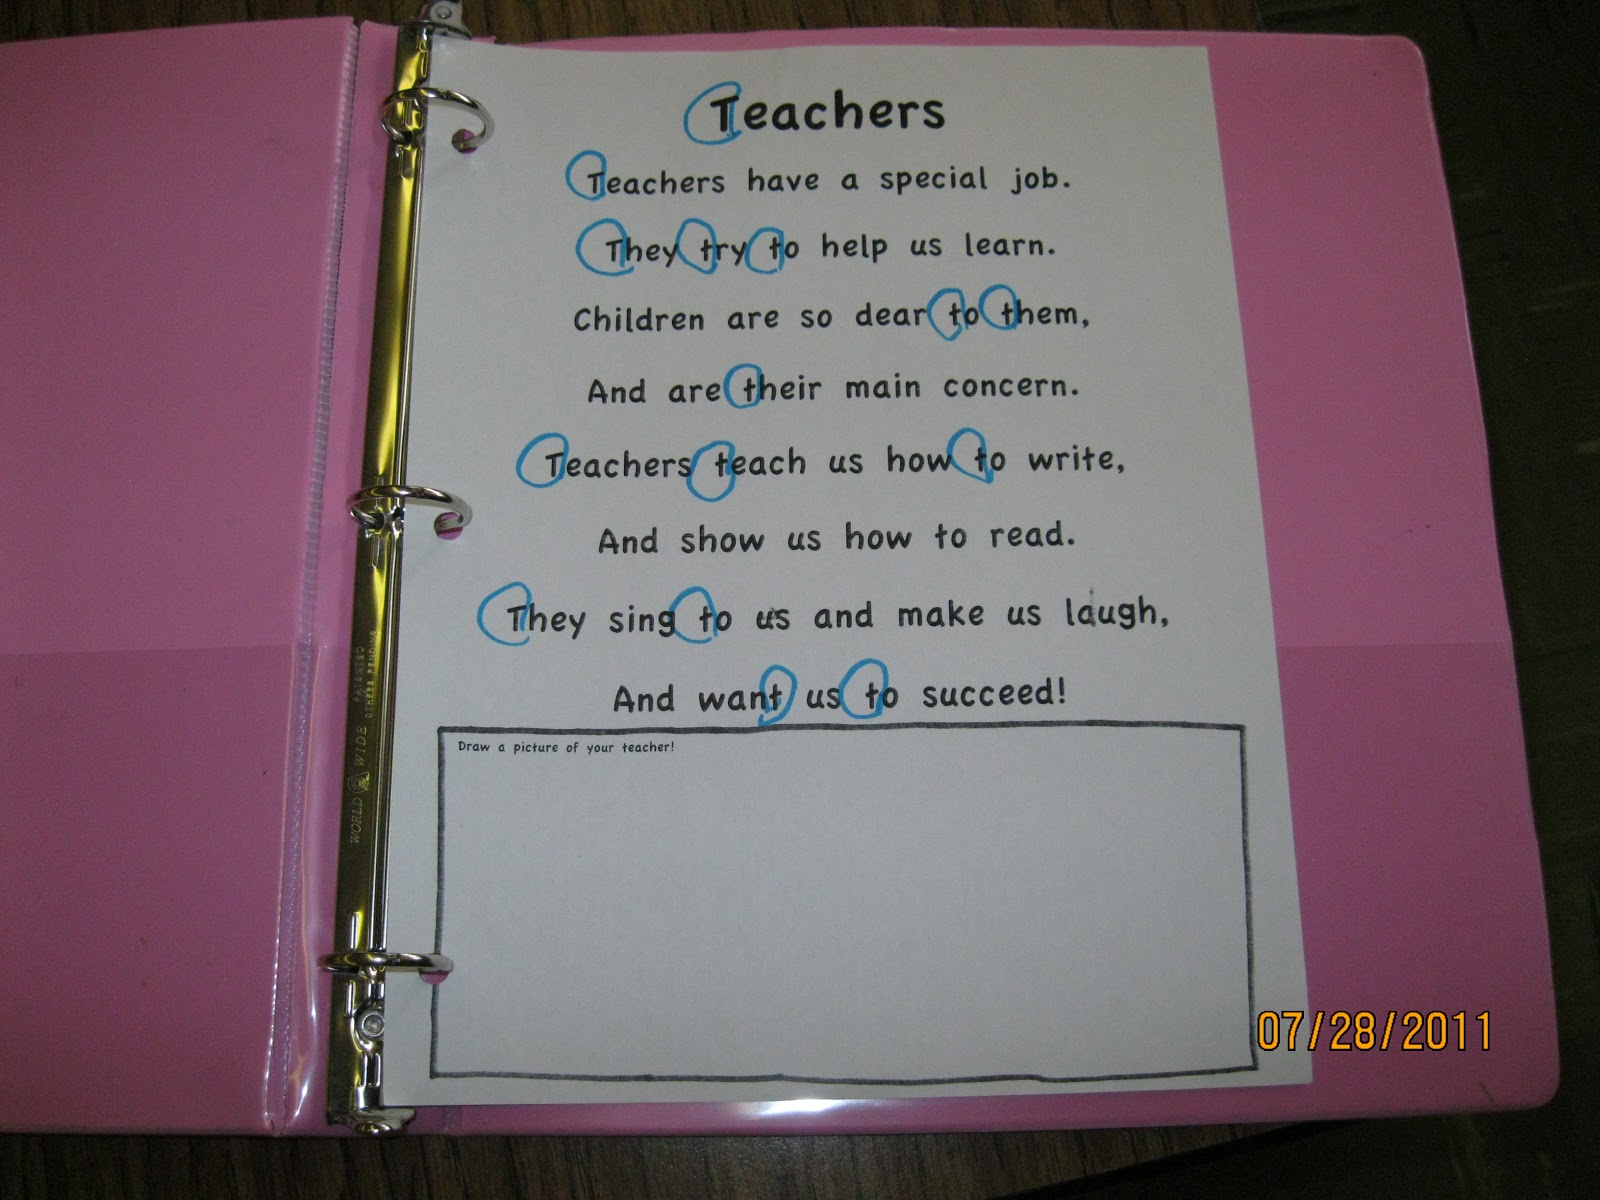 Teachers
Teachers have a special job.
They try to help us learn.
Children are so dear to them,
And are their main concern.
Teachers teach us how to write,
And show us how to read.
They sing to us and make us laugh,
And want us to succeed!
Draw a picture of your teacher!
WORLD WIDE
PATENTED
OTHERS PENDING
07/28/2011